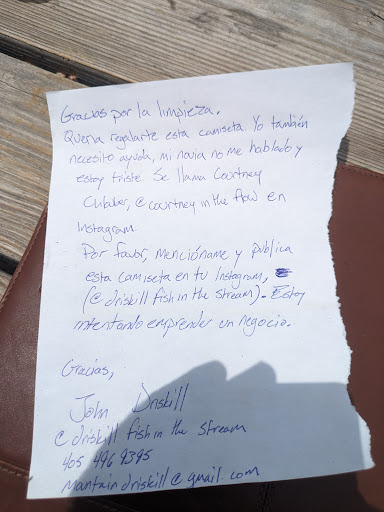 Gracias por la limpieza.
Queria regalarte esta camiseta. Yo también
necesito ayuda, mi novia no me hablado y
estoy triste. Se llama Courtney
@courtney in the flow en
Instagram.
Por favor, mencióname y publica
esta camiseta en tu Instagram,
(@driskill fish in the stream). Estoy
intentando emprender un negocio.
Gracias,
John Driskill
@driskill fish in the stream
405 496 9395
mantaindriskill@gmail.com